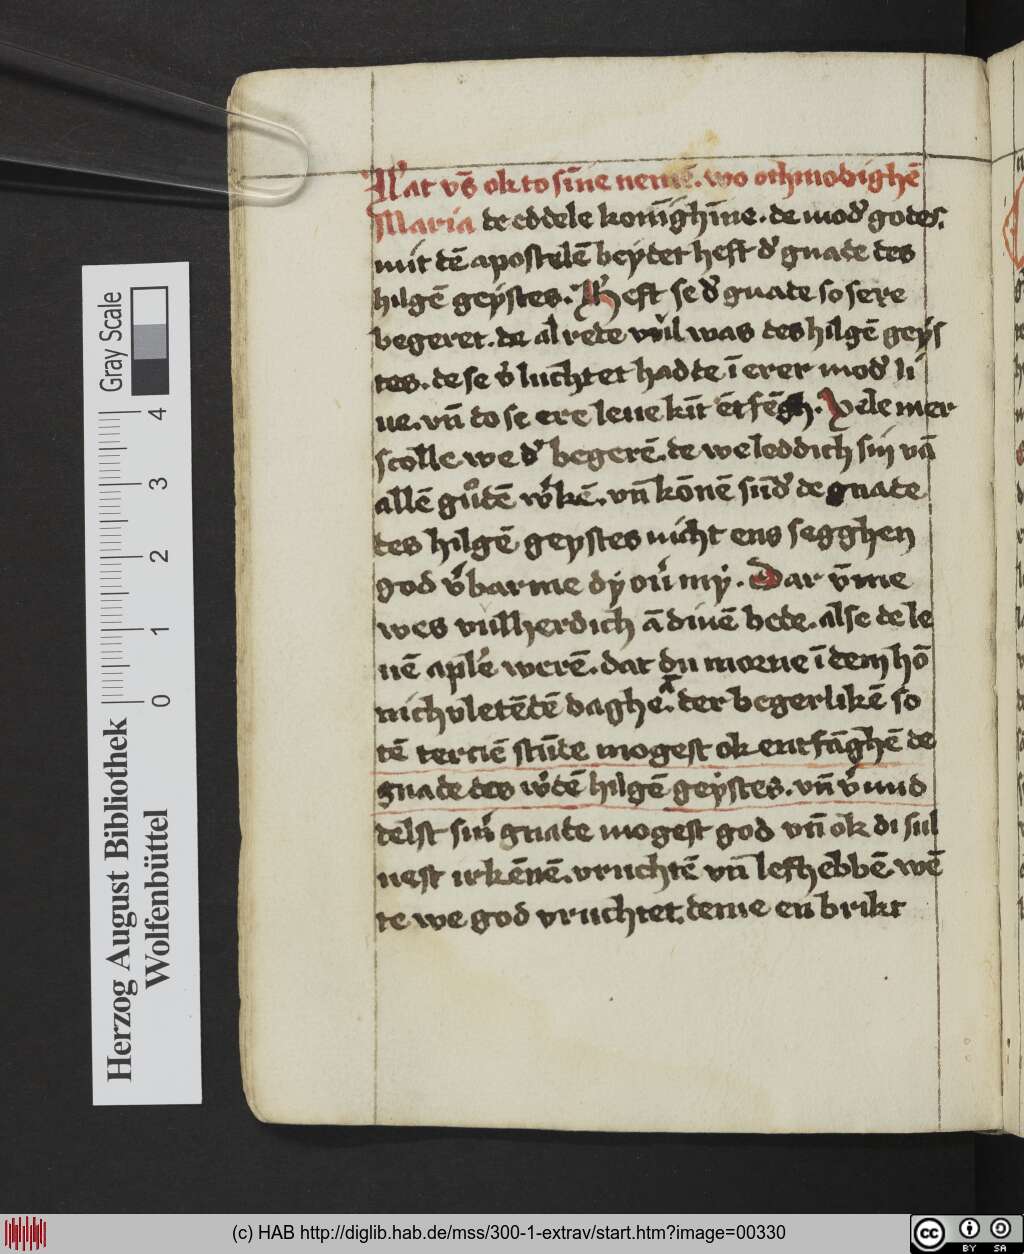 Nat vs̄ ok to sīne nemē. wo othmodighē
Maria de eddele konīghīne. de mod' godes.
mit dē apostelē beydet heft d' gnade des
hilgē geystes. Heft se d' gnade so sere
begeret. de al rede vu̓l was des hilgē geys
tes. de se v' luchtet hadde ī erer mod' li
ue. vn̄ do se ere leue kīt ētfēgh. Vele mer
scolle we d' begerē. de we leddich sin vā
allē gůdē w'kē. vn̄ kōnē sūd' de gnade
des hilgē geystes nicht ens segghen
god v'barme dy ou' my. Dar v̄me
wes vulherdich ā dinē bede. alse de le
uē ap'lē werē. dat du morne ī dem hō
nichvletēdē daghe. der begerlikē so
tē terciē stūde mogest ok entfāghē de
gnade des w'dē hilgē geystes. vn̄ v'mid
delst sin' gnade mogest god vn̄ ok di sul
uest irkēnē. vruchtē vn̄ lefhebbē. wē
te we god vruchtet. deme en brikt
Herzog August Bibliothek
Wolfenbüttel
Gray Scale
0 1 2 3 4
(c) HAB http://diglib.hab.de/mss/300-1-extrav/start.htm?image=00330
cc BY SA